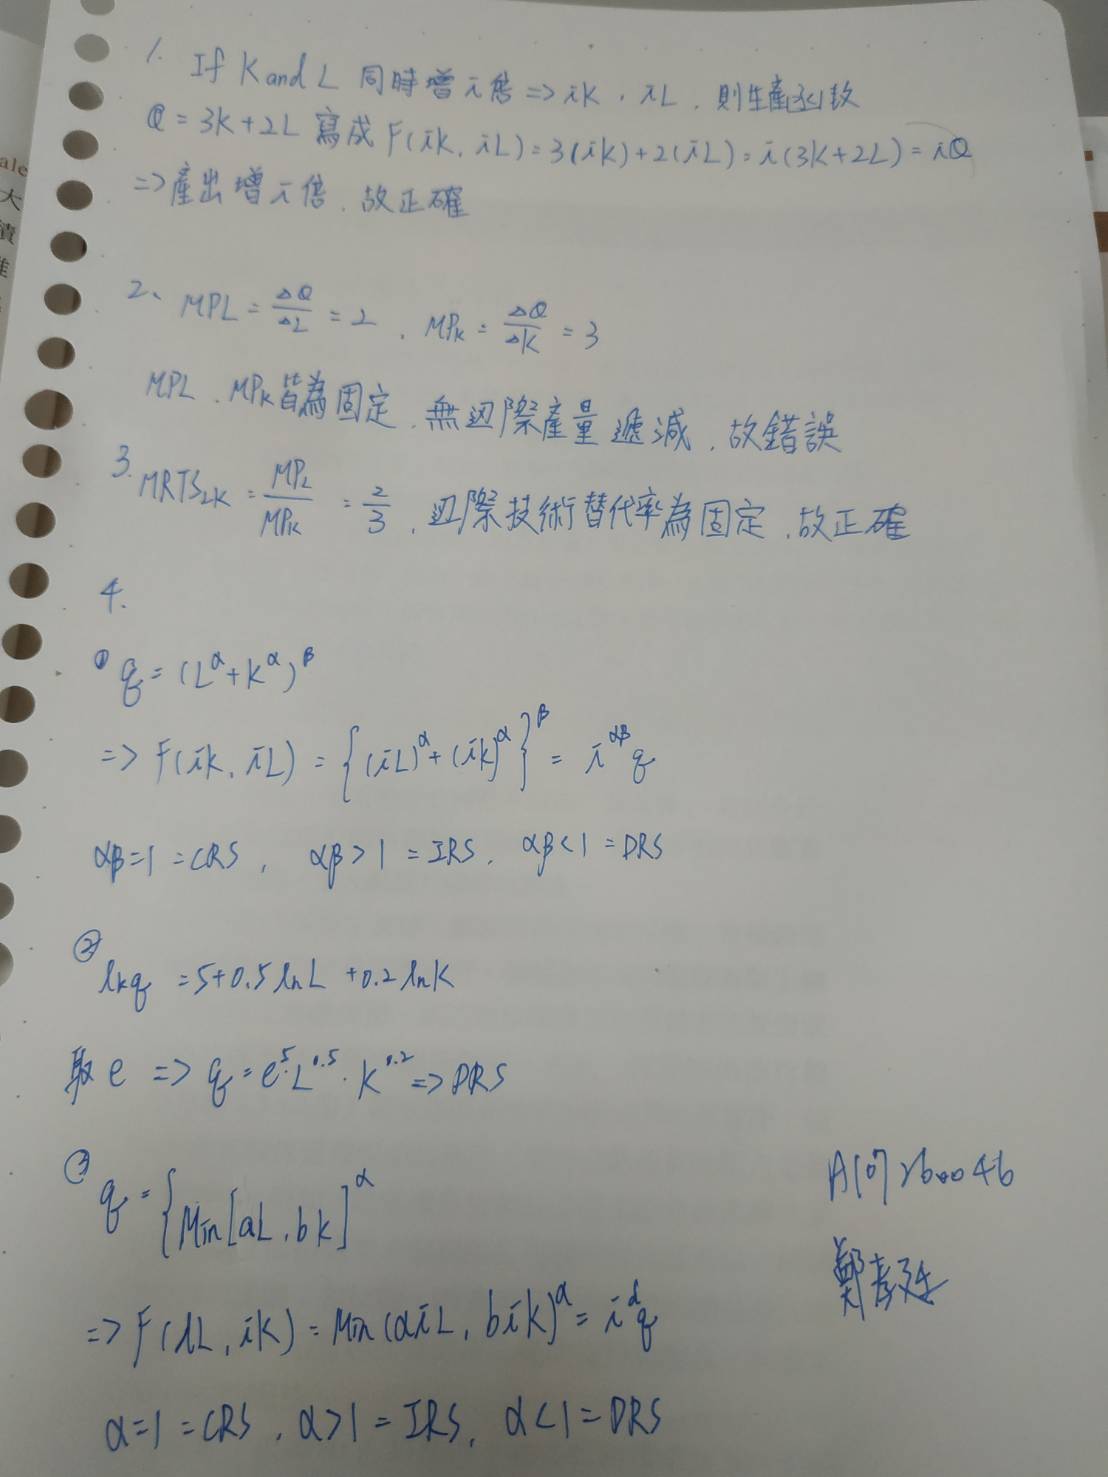 1. If K and L 同時增i倍 => iK, iL, 則生產函數
Q = 3K+2L 寫成 F(iK, iL) = 3(iK)+2(iL) = i(3K+2L) = iQ
=> 產出增i倍, 故正確
2、 MPL = ΔQ/ΔL = 2, MPK = ΔQ/ΔK = 3
MPL、MPK皆為固定, 無边際產量遞減, 故錯誤
3. MRTSLK = MPL/MPK = 2/3, 边際技術替代率為固定, 故正確
4.
① q = (L^α + K^α)^β
=> F(iK, iL) = {(iL)^α + (iK)^α}^β = i^αβ q
αβ=1 = CRS, αβ>1 = IRS, αβ<1 = DRS
② lnq = 5+0.5lnL +0.2lnK
取 e => q = e^5·L^0.5·K^0.2 => DRS
③ q = {Min[aL, bK]^α
=> F(iL, iK) = Min(aiL, biK)^α = i^α q
α=1 = CRS, α>1 = IRS, α<1 = DRS
大
鄭孝廷